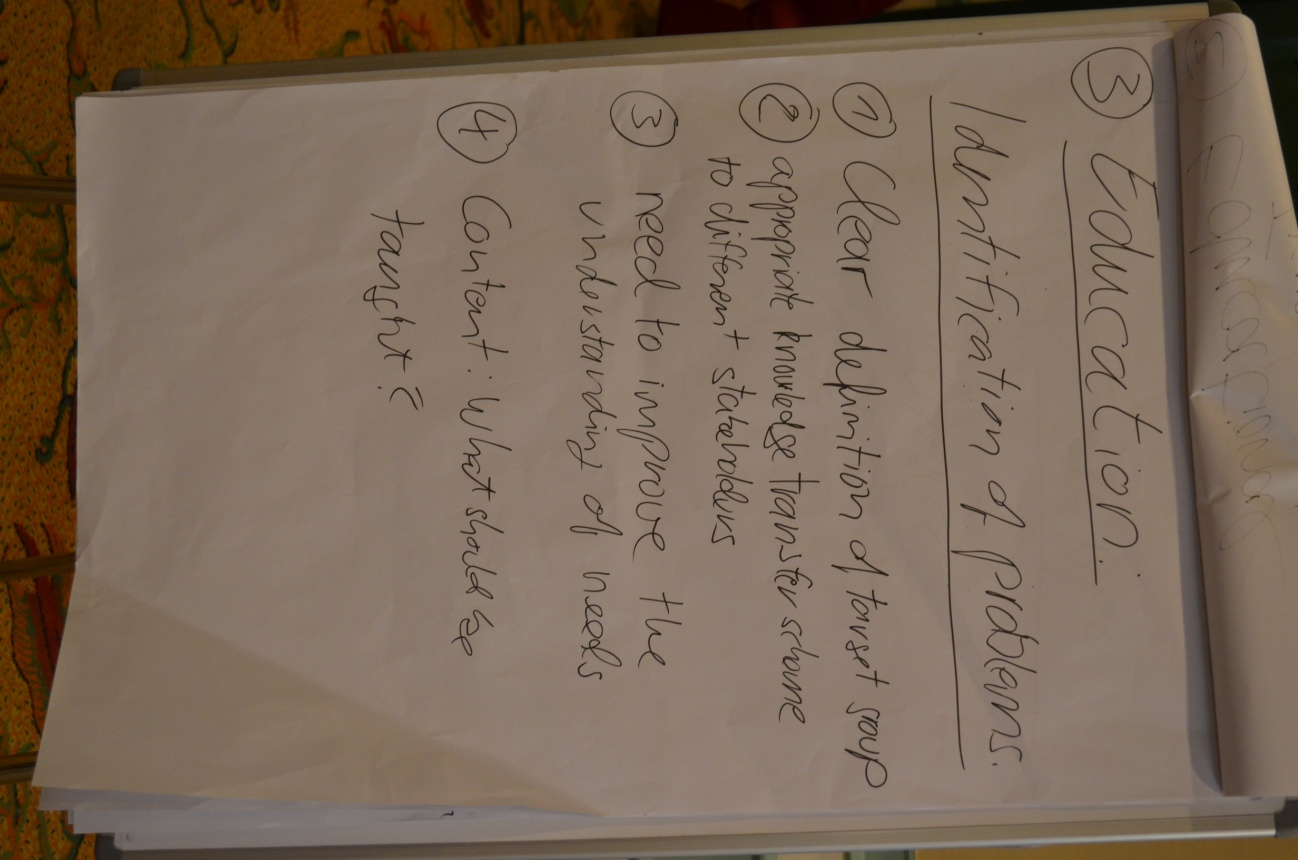 ③ Education.
Identification of problems.
① Clear definition of target group
② appropriate knowledge transfer scheme
to different stakeholders
③ need to improve the
understanding of needs
④ Content: What should be
taught?